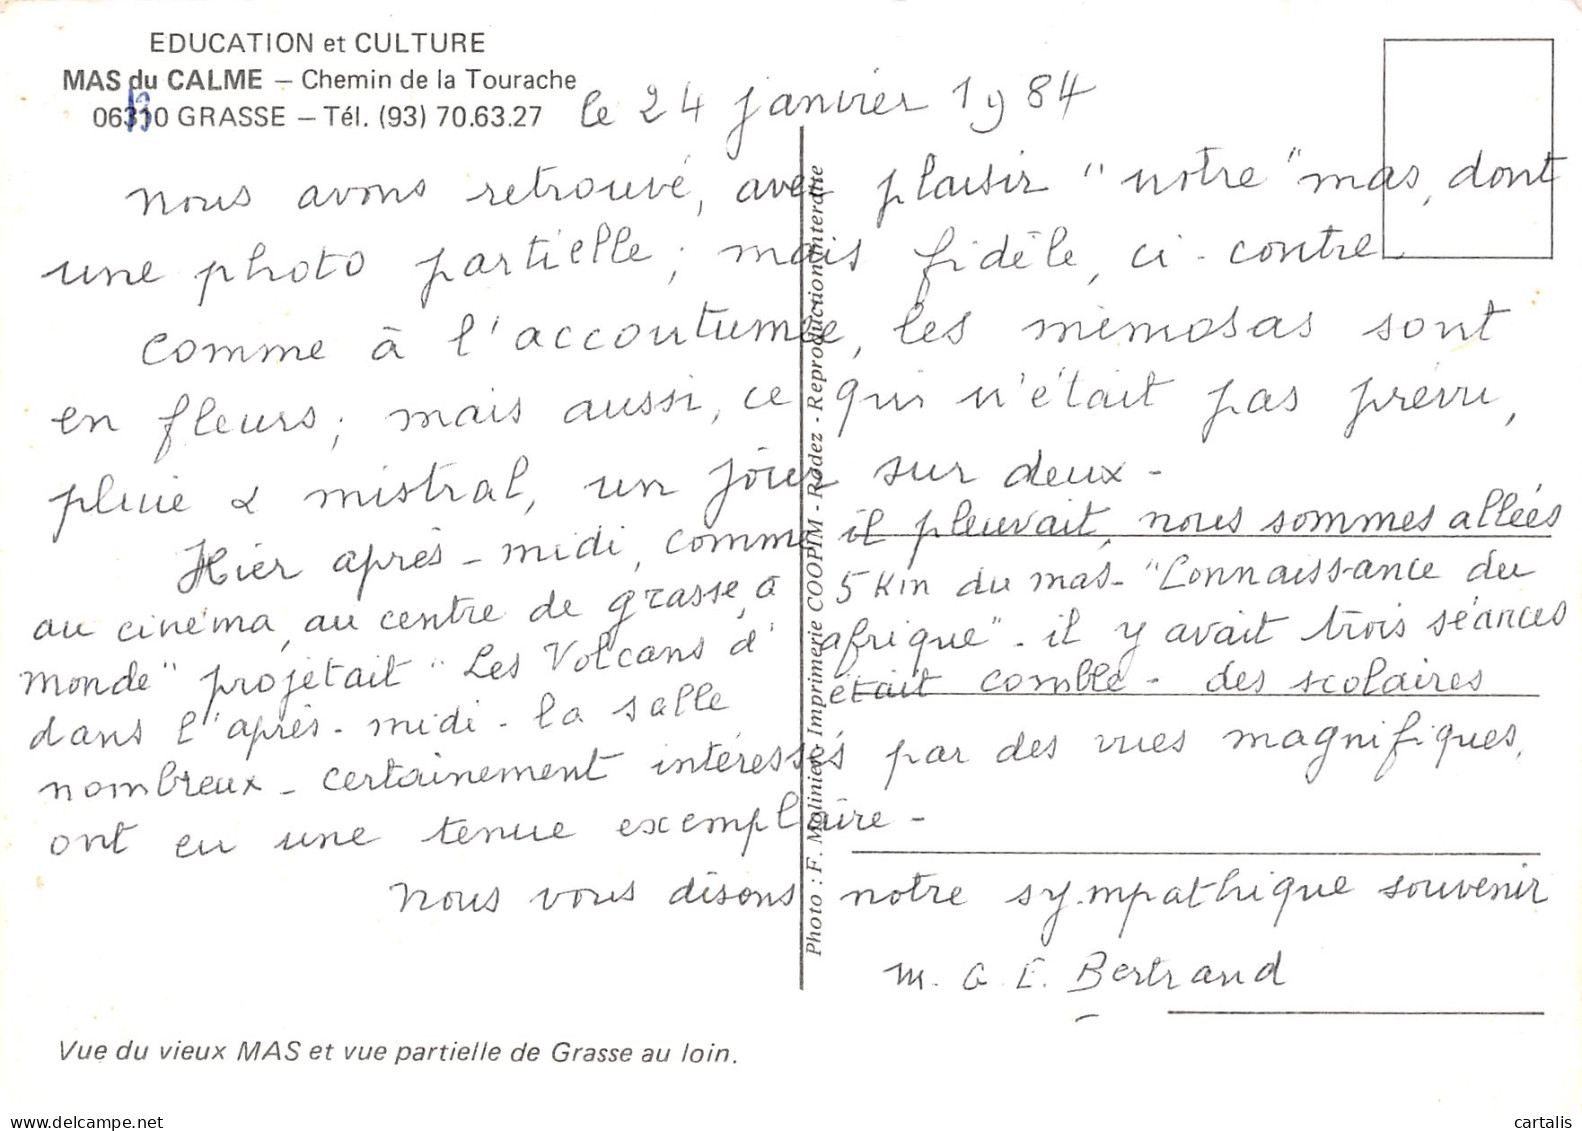 EDUCATION et CULTURE
MAS du CALME – Chemin de la Tourache
06310 GRASSE – Tél. (93) 70.63.27
le 24 janvier 1984
nous avons retrouvé, avec plaisir "notre" mas, dont
une photo partielle, mais fidèle, ci-contre.
comme à l'accoutumée, les mimosas sont
en fleurs; mais aussi, ce qui n'était pas prévu,
pluie & mistral, un jour sur deux -
Hier après-midi, comme il pleuvait, nous sommes allées
au cinéma, au centre de grasse, à 5 km du mas - "Connaissance du
monde" projetait "Les Volcans d'afrique". il y avait trois séances
dans l'après-midi - la salle était comble - des scolaires
nombreux - certainement intéressés par des vues magnifiques,
ont eu une tenue exemplaire -
nous vous disons notre sympathique souvenir
M. G. E. Bertrand
Photo : F. Molinier - Imprimerie COOPIM - Rodez - Reproduction interdite
Vue du vieux MAS et vue partielle de Grasse au loin.
cartalis